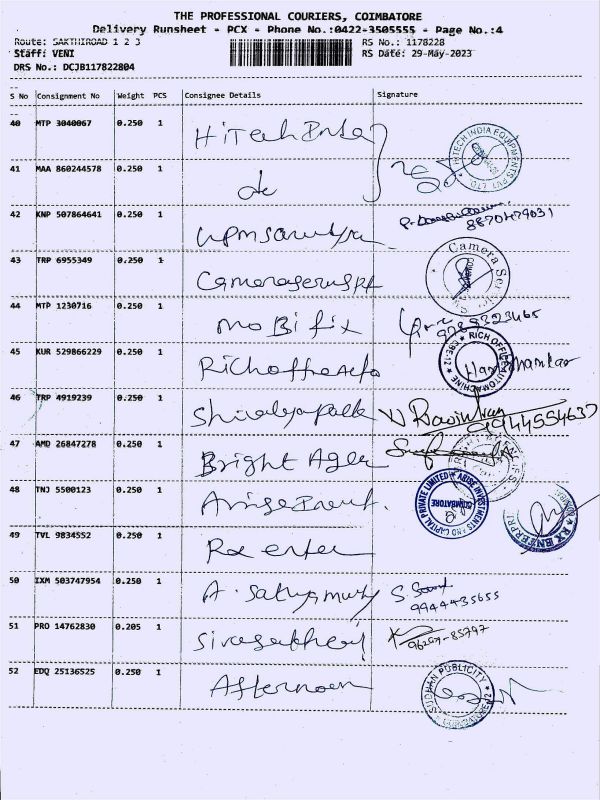 THE PROFESSIONAL COURIERS, COIMBATORE
Delivery Runsheet - PCX - Phone No.:0422-3505555 - Page No.:4
Route: SAKTHIROAD 1 2 3 RS No.: 1178228
Staff: VENI RS Date: 29-May-2023
DRS No.: DCJB117822804
S No Consignment No Weight PCS Consignee Details Signature
40 MTP 3040067 0.250 1 HiTech India
HITECH INDIA EQUIPMENTS PVT LTD
41 MAA 860244578 0.250 1 do
42 KNP 507864641 0.250 1
8870479031
43 TRP 6955349 0.250 1
Camera Service
44 MTP 1230716 0.250 1 mobi fix
9788323465
45 KUR 529866229 0.250 1
RICH OFFICE AUTOMACHINE CBE-12
46 TRP 4919239 0.250 1
9944554637
47 AMD 26847278 0.250 1 Bright Agen
48 TNJ 5500123 0.250 1 Arise Invest.
ARISE INVESTMENTS AND CAPITAL PRIVATE LIMITED COIMBATORE
49 TVL 9834552 0.250 1 Rx enter
RX ENTERPRI
50 IXM 503747954 0.250 1 A. Sathyamurthy
9944435655
51 PRO 14762830 0.205 1
96297-85797
52 EDQ 25136525 0.250 1 Afternoon
SUDHAN PUBLICITY